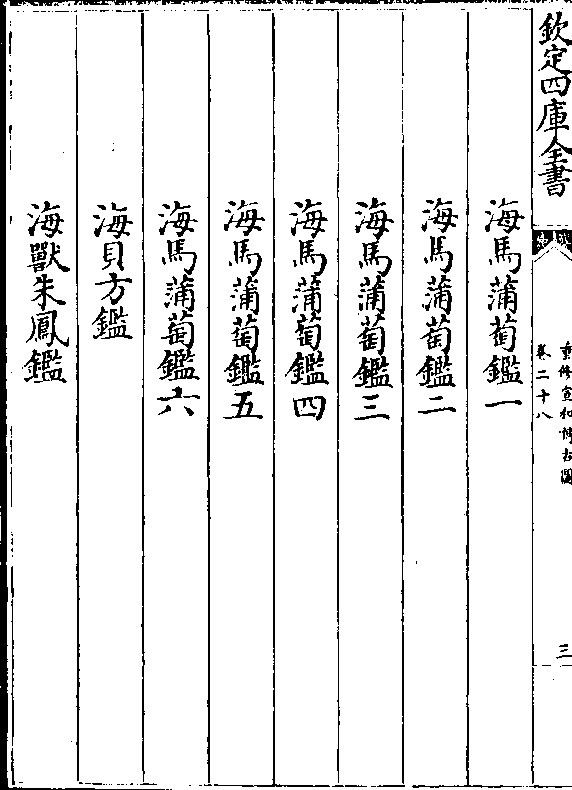 欽定四庫全書
重修宣和博古圖
卷二十八
三
海馬蒲萄鑑一
海馬蒲萄鑑二
海馬蒲萄鑑三
海馬蒲萄鑑四
海馬蒲萄鑑五
海馬蒲萄鑑六
海貝方鑑
海獸朱鳳鑑